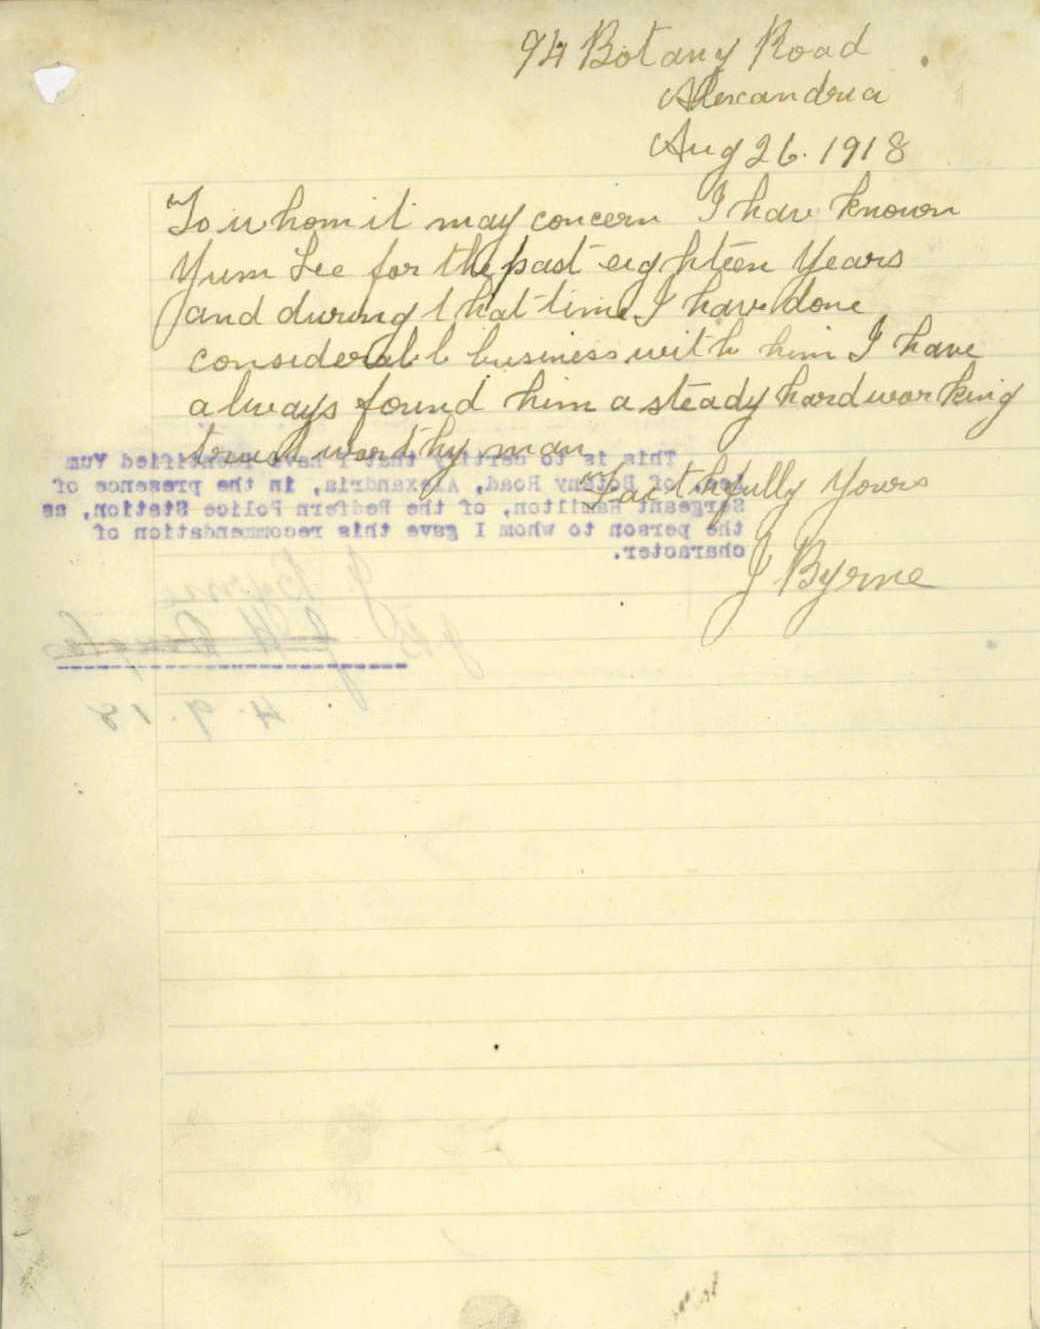 94 Botany Road
Alexandria
Aug 26. 1918
To whom it may concern I have known
Yum Lee for the past eighteen Years
and during that time I have done
considerabl business with him I have
always found him a steady hard working
trust worthy man
Faithfully Yours
J Byrne
This is to certify that I have identified Yum
Lee, of Botany Road, Alexandria, in the presence of
Sergeant Hamilton, of the Redfern Police Station, as
the person to whom I gave this recommendation of
character.
J Byrne
4.9.18